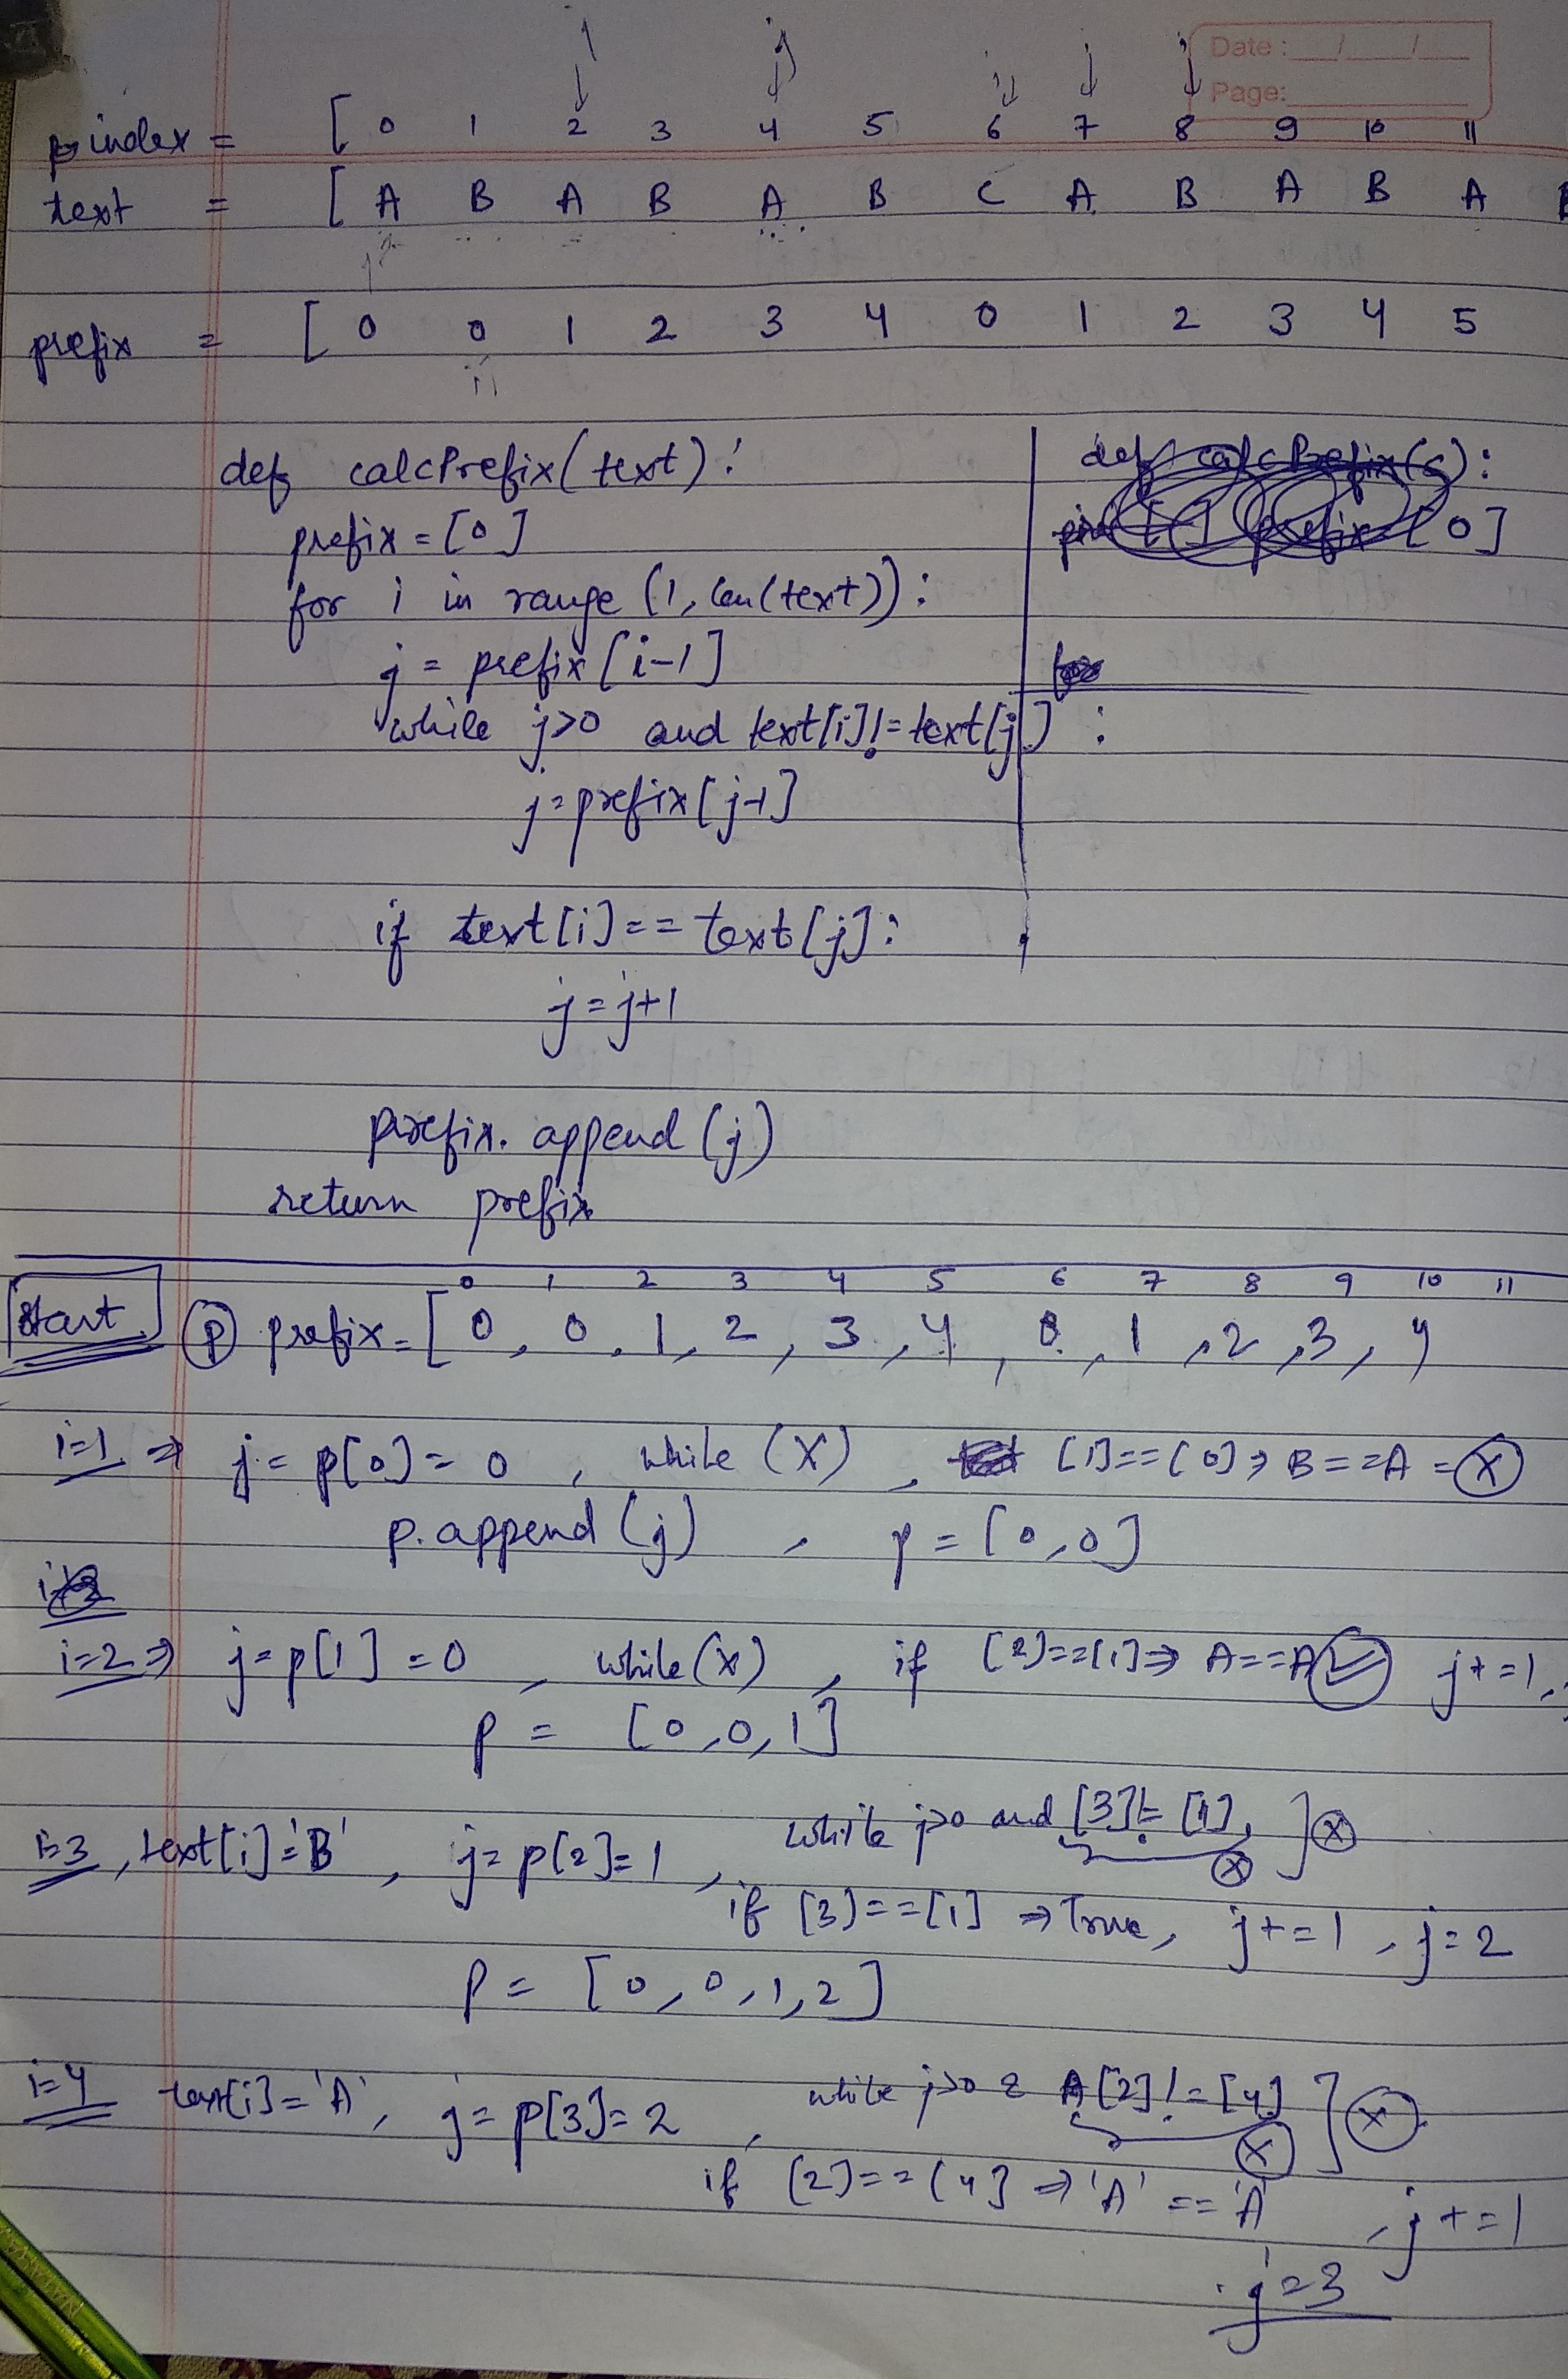 Date : __/__/__
Page: ____
index = [ 0 1 2 3 4 5 6 7 8 9 10 11
text = [ A B A B A B C A B A B A
prefix = [ 0 0 1 2 3 4 0 1 2 3 4 5
def calcPrefix(text):
prefix = [0]
for i in range (1, len(text)):
j = prefix [i-1]
while j>0 and text[i]!=text[j] :
j=prefix[j-1]
if text[i]==text[j]:
j=j+1
prefix.append(j)
return prefix
def calcPrefix(s):
prefix [0]
0 1 2 3 4 5 6 7 8 9 10 11
Start (P) prefix=[0, 0, 1, 2, 3, 4, 0, 1, 2, 3, 4
i=1 ⇒ j= p[0]= 0 , while (X) , [1]==[0]⇒ B==A = (X)
p.append(j) , p=[0,0]
i=2 ⇒ j=p[1]=0 , while(x) , if [2]==[1]⇒ A==A ✓ j+=1,
p = [0,0,1]
i=3, text[i]='B' , j=p[2]=1 , while j>0 and [3]!=[1], (x) ] (x)
if [3]==[1] ⇒ True, j+=1, j=2
p= [0,0,1,2]
i=4 text[i]='A', j=p[3]=2 , while j>0 & A[2]!=[4] (x) ] (x)
if [2]==[4] ⇒ 'A' == 'A' , j+=1
j=3